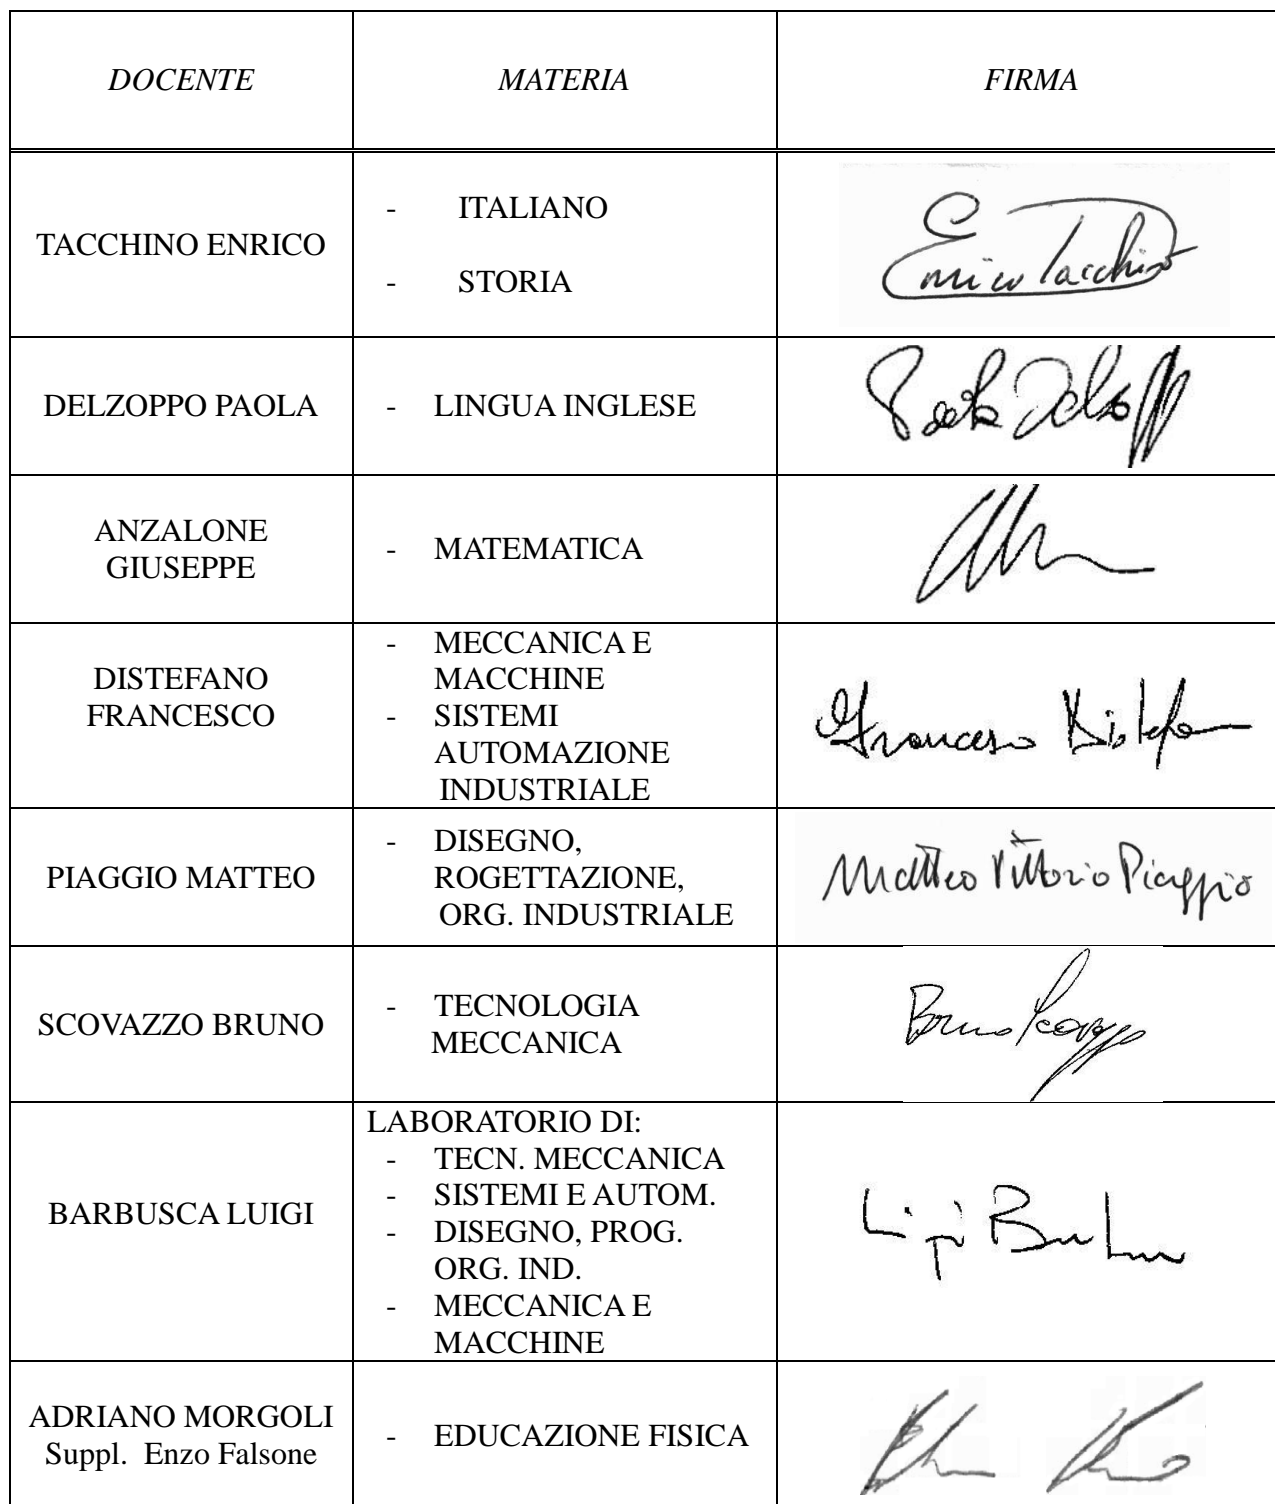 DOCENTE MATERIA FIRMA
TACCHINO ENRICO
- ITALIANO
- STORIA
Enrico Tacchino
DELZOPPO PAOLA
- LINGUA INGLESE
Paola Delzopp
ANZALONE
GIUSEPPE
- MATEMATICA
DISTEFANO
FRANCESCO
- MECCANICA E
MACCHINE
- SISTEMI
AUTOMAZIONE
INDUSTRIALE
Francesco Distefano
PIAGGIO MATTEO
- DISEGNO,
ROGETTAZIONE,
ORG. INDUSTRIALE
Matteo Vittorio Piaggio
SCOVAZZO BRUNO
- TECNOLOGIA
MECCANICA
Bruno Scovazzo
BARBUSCA LUIGI
LABORATORIO DI:
- TECN. MECCANICA
- SISTEMI E AUTOM.
- DISEGNO, PROG.
ORG. IND.
- MECCANICA E
MACCHINE
Luigi
ADRIANO MORGOLI
Suppl. Enzo Falsone
- EDUCAZIONE FISICA